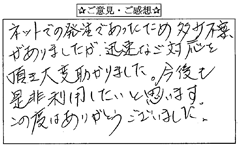 ☆ご意見・ご感想☆
ネットでの発注であったため多少不安
がありましたが、迅速なご対応を
頂き大変助かりました。今後も
是非利用したいと思います。
この度はありがとうございました。